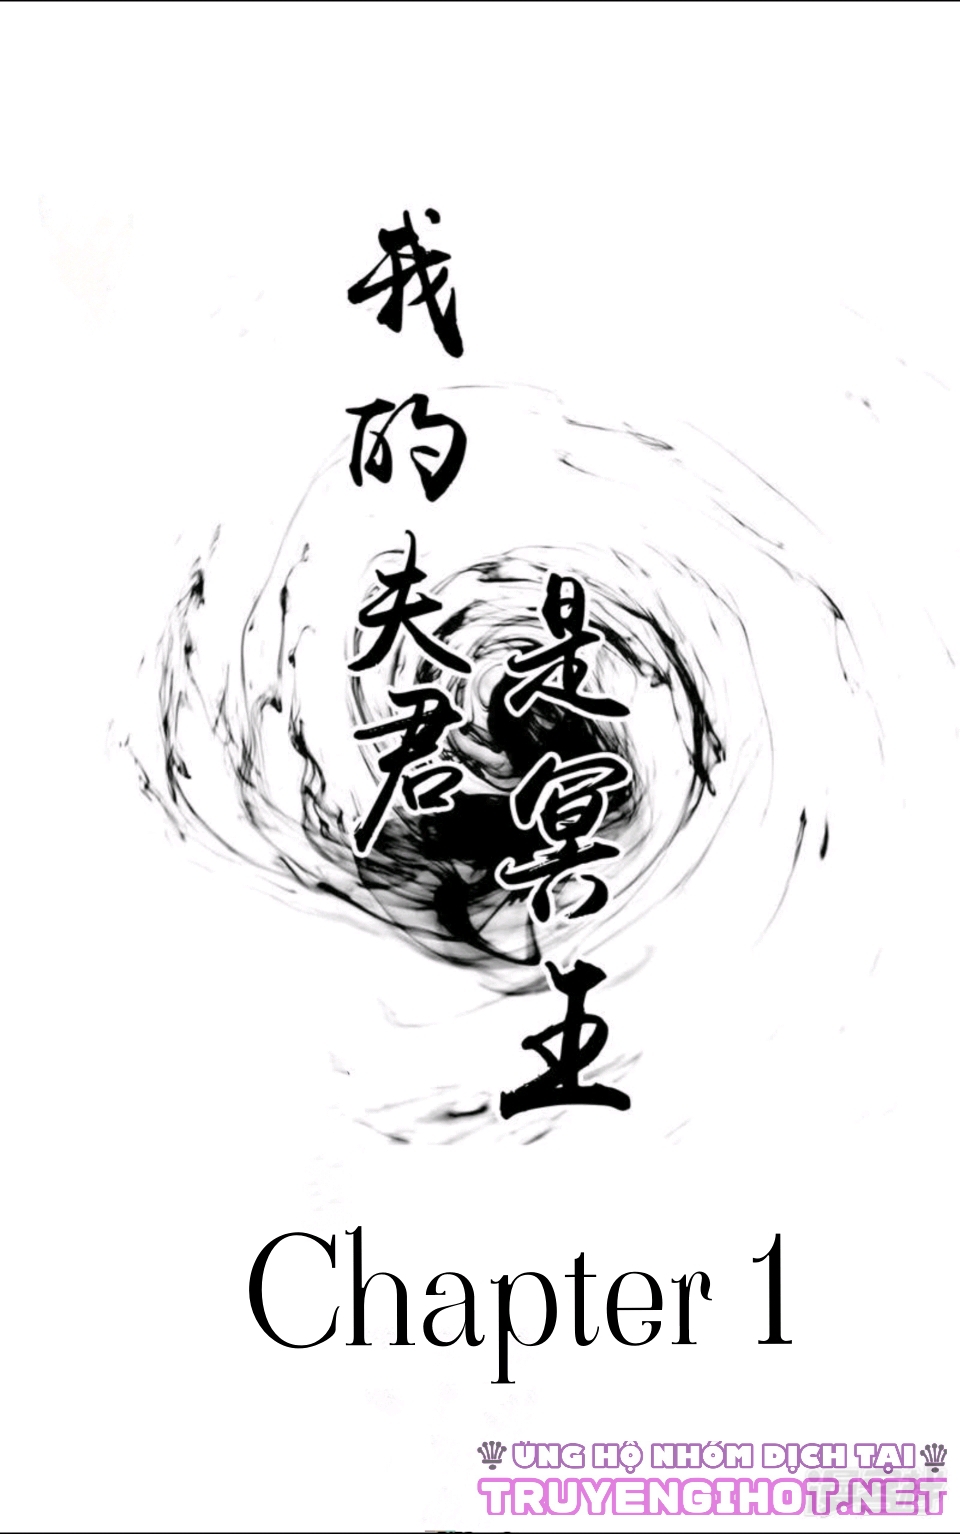 我的夫君
是冥王
Chapter 1
ỦNG HỘ NHÓM DỊCH TẠI
TRUYENGIHOT.NET